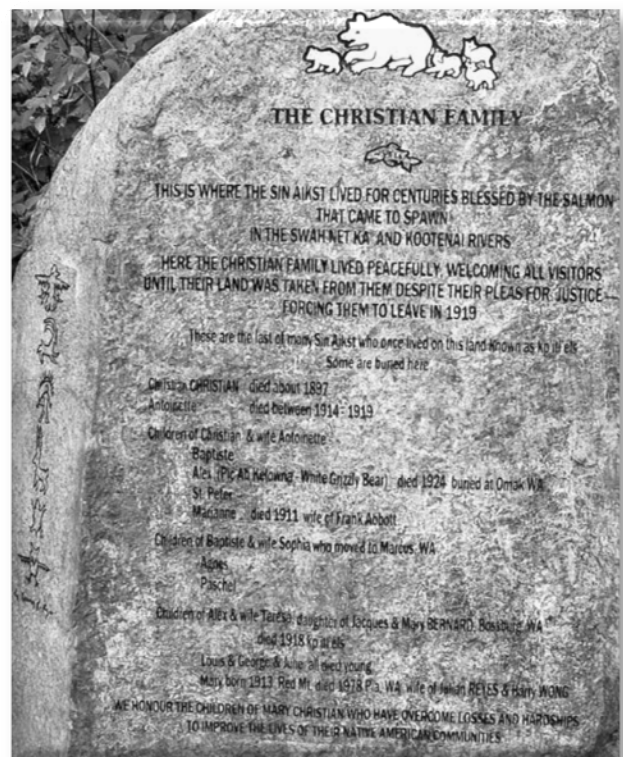 THE CHRISTIAN FAMILY
THIS IS WHERE THE SIN AIKST LIVED FOR CENTURIES BLESSED BY THE SALMON
THAT CAME TO SPAWN
IN THE SWAH NET KA' AND KOOTENAI RIVERS
HERE THE CHRISTIAN FAMILY LIVED PEACEFULLY, WELCOMING ALL VISITORS
UNTIL THEIR LAND WAS TAKEN FROM THEM DESPITE THEIR PLEAS FOR JUSTICE
FORCING THEM TO LEAVE IN 1919
These are the last of many Sin Aikst who once lived on this land known as kp itl els
Some are buried here
Christian CHRISTIAN died about 1897
Antoinette died between 1914 - 1919
Children of Christian & wife Antoinette
Baptiste
Alex (Pic Ah Kelowna - White Grizzly Bear) died 1924 buried at Omak WA
St. Peter
Marianne died 1911 wife of Frank Abbott
Children of Baptiste & wife Sophia who moved to Marcus, WA
Agnes
Paschel
Children of Alex & wife Teresa, daughter of Jacques & Mary BERNARD, Bossburg, WA
died 1918 kp itl els
Louis & George & Julia all died young
Mary born 1913 Red Mt. died 1978 WA, wife of Julian REYES & Harry WONG
WE HONOUR THE CHILDREN OF MARY CHRISTIAN WHO HAVE OVERCOME LOSSES AND HARDSHIPS
TO IMPROVE THE LIVES OF THEIR NATIVE AMERICAN COMMUNITIES